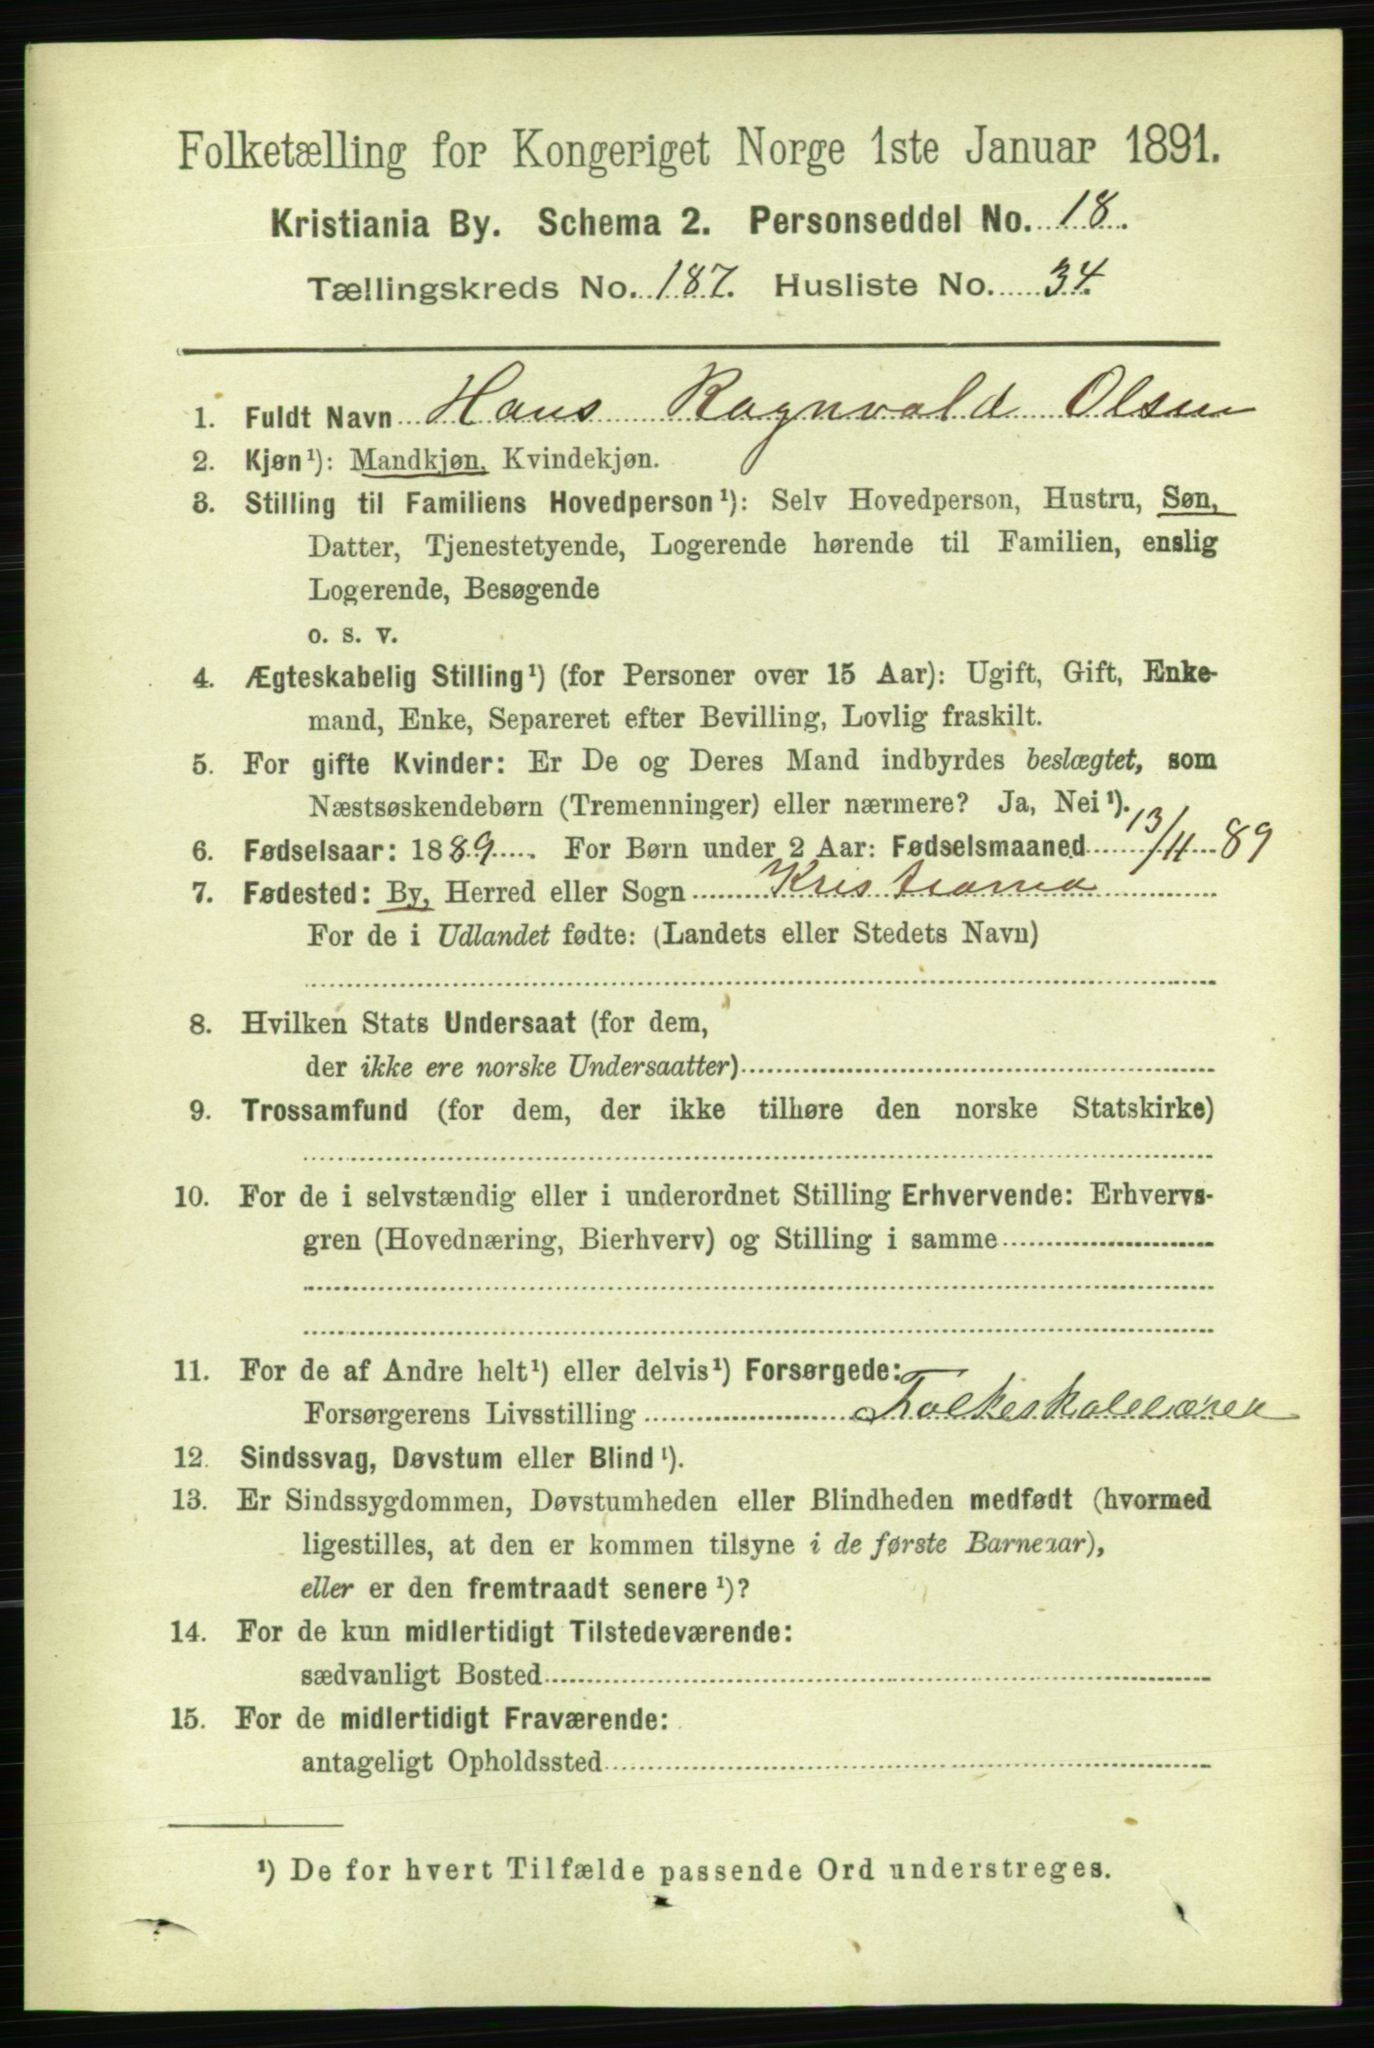 Folketælling for Kongeriget Norge 1ste Januar 1891.
Kristiania By. Schema 2. Personseddel No. 18.
Tællingskreds No. 187. Husliste No. 34.
1. Fuldt Navn Hans Ragnvald Olsen
2. Kjøn¹): Mandkjøn, Kvindekjøn.
3. Stilling til Familiens Hovedperson¹): Selv Hovedperson, Hustru, Søn,
Datter, Tjenestetyende, Logerende hørende til Familien, enslig
Logerende, Besøgende
o. s. v.
4. Ægteskabelig Stilling¹) (for Personer over 15 Aar): Ugift, Gift, Enke-
mand, Enke, Separeret efter Bevilling, Lovlig fraskilt.
5. For gifte Kvinder: Er De og Deres Mand indbyrdes beslægtet, som
Næstsøskendebørn (Tremenninger) eller nærmere? Ja, Nei¹).
6. Fødselsaar: 1889. For Børn under 2 Aar: Fødselsmaaned 13/4 89
7. Fødested: By, Herred eller Sogn Kristiania
For de i Udlandet fødte: (Landets eller Stedets Navn)
8. Hvilken Stats Undersaat (for dem,
der ikke ere norske Undersaatter)
9. Trossamfund (for dem, der ikke tilhøre den norske Statskirke)
10. For de i selvstændig eller i underordnet Stilling Erhvervende: Erhvervs-
gren (Hovednæring, Bierhverv) og Stilling i samme
11. For de af Andre helt¹) eller delvis¹) Forsørgede:
Forsørgerens Livsstilling Folkeskolelærer
12. Sindssvag, Døvstum eller Blind¹).
13. Er Sindssygdommen, Døvstumheden eller Blindheden medfødt (hvormed
ligestilles, at den er kommen tilsyne i de første Barneaar),
eller er den fremtraadt senere¹)?
14. For de kun midlertidigt Tilstedeværende:
sædvanligt Bosted
15. For de midlertidigt Fraværende:
antageligt Opholdssted
¹) De for hvert Tilfælde passende Ord understreges.